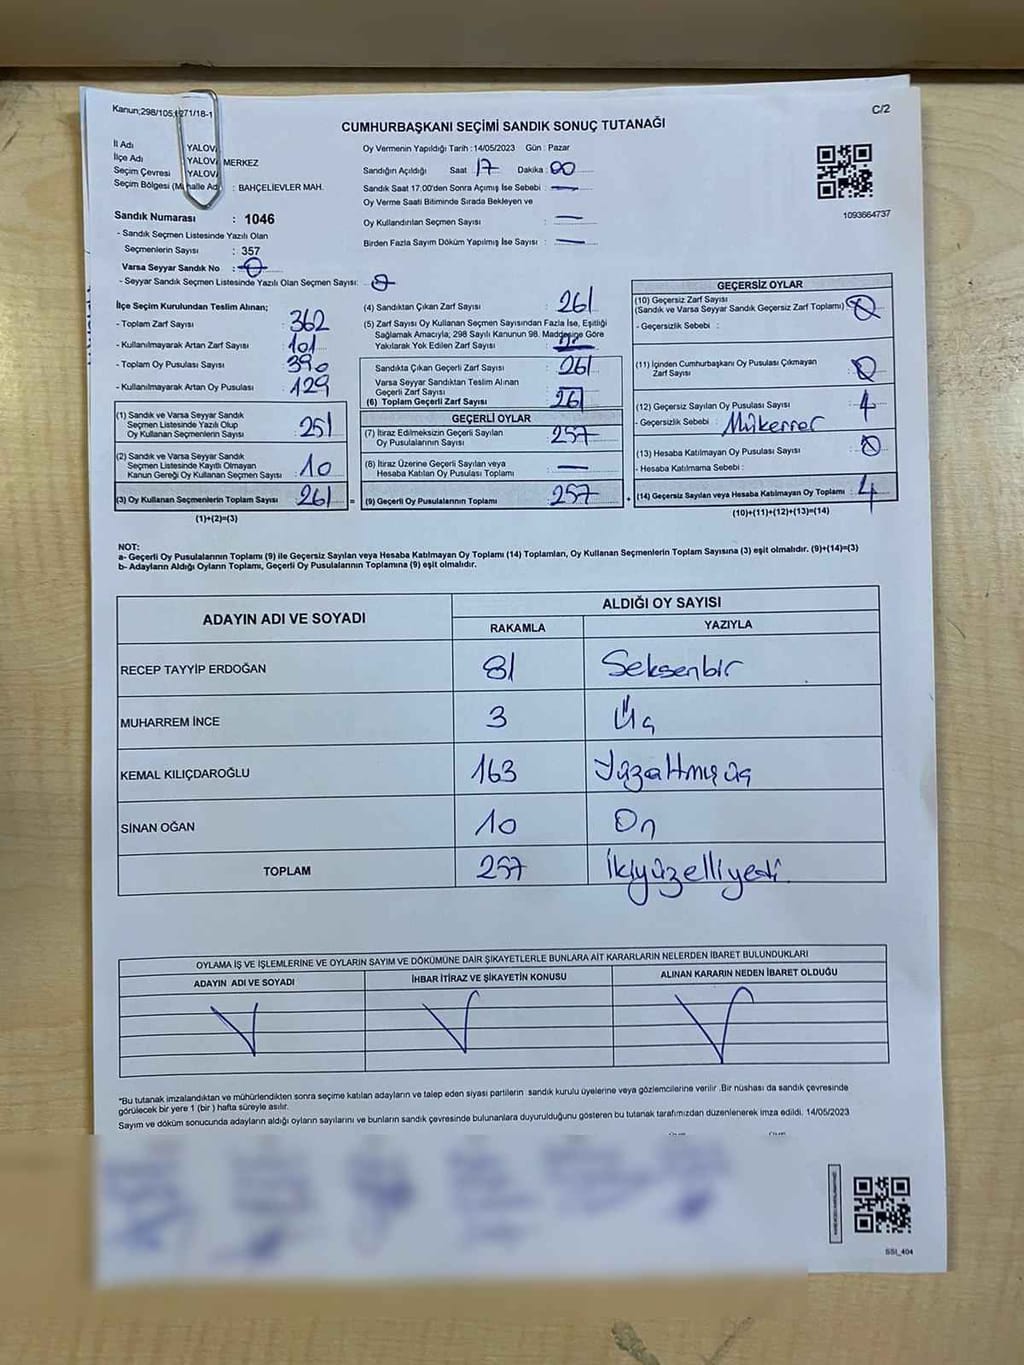 Kanun;298/105,1271/18-1
C/2
CUMHURBAŞKANI SEÇİMİ SANDIK SONUÇ TUTANAĞI
İl Adı YALOVA
İlçe Adı YALOVA MERKEZ
Seçim Çevresi YALOVA
Seçim Bölgesi (Mahalle Adı) : BAHÇELİEVLER MAH.
Sandık Numarası : 1046
- Sandık Seçmen Listesinde Yazılı Olan
Seçmenlerin Sayısı : 357
Varsa Seyyar Sandık No : 0
- Seyyar Sandık Seçmen Listesinde Yazılı Olan Seçmen Sayısı: 0
Oy Vermenin Yapıldığı Tarih :14/05/2023 Gün : Pazar
Sandığın Açıldığı Saat 17 Dakika : 00
Sandık Saat 17.00'den Sonra Açımış İse Sebebi : —
Oy Verme Saati Bitiminde Sırada Bekleyen ve
Oy Kullandırılan Seçmen Sayısı : —
Birden Fazla Sayım Döküm Yapılmış İse Sayısı : —
1093664737
İlçe Seçim Kurulundan Teslim Alınan;
- Toplam Zarf Sayısı : 362
- Kullanılmayarak Artan Zarf Sayısı : 101
- Toplam Oy Pusulası Sayısı : 390
- Kullanılmayarak Artan Oy Pusulası : 129
(1) Sandık ve Varsa Seyyar Sandık
Seçmen Listesinde Yazılı Olup
Oy Kullanan Seçmenlerin Sayısı : 251
(2) Sandık ve Varsa Seyyar Sandık
Seçmen Listesinde Kayıtlı Olmayan
Kanun Gereği Oy Kullanan Seçmen Sayısı : 10
(3) Oy Kullanan Seçmenlerin Toplam Sayısı : 261 =
(1)+(2)=(3)
(4) Sandıktan Çıkan Zarf Sayısı : 261
(5) Zarf Sayısı Oy Kullanan Seçmen Sayısından Fazla İse, Eşitliği
Sağlamak Amacıyla; 298 Sayılı Kanunun 98. Maddesine Göre
Yakılarak Yok Edilen Zarf Sayısı :
Sandıkta Çıkan Geçerli Zarf Sayısı : 261
Varsa Seyyar Sandıktan Teslim Alınan
Geçerli Zarf Sayısı :
(6) Toplam Geçerli Zarf Sayısı : 261
GEÇERLİ OYLAR
(7) İtiraz Edilmeksizin Geçerli Sayılan
Oy Pusulalarının Sayısı : 257
(8) İtiraz Üzerine Geçerli Sayılan veya
Hesaba Katılan Oy Pusulası Toplamı : —
(9) Geçerli Oy Pusulalarının Toplamı : 257 +
GEÇERSİZ OYLAR
(10) Geçersiz Zarf Sayısı
(Sandık ve Varsa Seyyar Sandık Geçersiz Zarf Toplamı) : 0
- Geçersizlik Sebebi :
(11) İçinden Cumhurbaşkanı Oy Pusulası Çıkmayan
Zarf Sayısı : 0
(12) Geçersiz Sayılan Oy Pusulası Sayısı : 4
- Geçersizlik Sebebi : Mükerrer
(13) Hesaba Katılmayan Oy Pusulası Sayısı : 0
- Hesaba Katılmama Sebebi :
(14) Geçersiz Sayılan veya Hesaba Katılmayan Oy Toplamı : 4
(10)+(11)+(12)+(13)=(14)
NOT:
a- Geçerli Oy Pusulalarının Toplamı (9) ile Geçersiz Sayılan veya Hesaba Katılmayan Oy Toplamı (14) Toplamları, Oy Kullanan Seçmenlerin Toplam Sayısına (3) eşit olmalıdır. (9)+(14)=(3)
b- Adayların Aldığı Oyların Toplamı, Geçerli Oy Pusulalarının Toplamına (9) eşit olmalıdır.
ADAYIN ADI VE SOYADI
ALDIĞI OY SAYISI
RAKAMLA YAZIYLA
RECEP TAYYİP ERDOĞAN 81 Seksenbir
MUHARREM İNCE 3 Üç
KEMAL KILIÇDAROĞLU 163 Yüzaltmışüç
SİNAN OĞAN 10 On
TOPLAM 257 İkiyüzelliyedi
OYLAMA İŞ VE İŞLEMLERİNE VE OYLARIN SAYIM VE DÖKÜMÜNE DAİR ŞİKAYETLERLE BUNLARA AİT KARARLARIN NELERDEN İBARET BULUNDUKLARI
ADAYIN ADI VE SOYADI İHBAR İTİRAZ VE ŞİKAYETİN KONUSU ALINAN KARARIN NEDEN İBARET OLDUĞU
*Bu tutanak imzalandıktan ve mühürlendikten sonra seçime katılan adayların ve talep eden siyasi partilerin sandık kurulu üyelerine veya gözlemcilerine verilir .Bir nüshası da sandık çevresinde
görülecek bir yere 1 (bir ) hafta süreyle asılır.
Sayım ve döküm sonucunda adayların aldığı oyların sayılarını ve bunların sandık çevresinde bulunanlara duyurulduğunu gösteren bu tutanak tarafımızdan düzenlenerek imza edildi. 14/05/2023
SSI_404